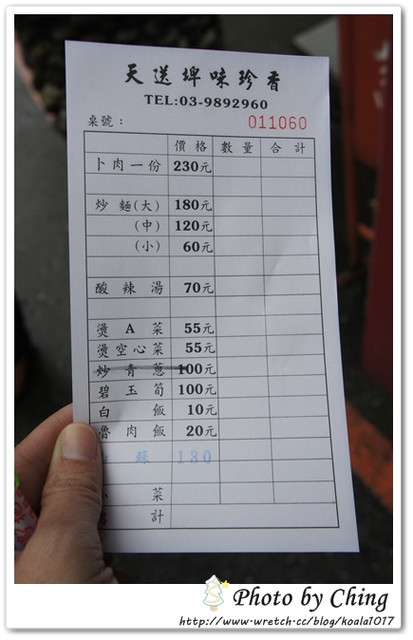 天送埤味珍香
TEL:03-9892960
桌號: 011060
價格 數量 合計
卜肉一份 230元
炒麵(大) 180元
(中) 120元
(小) 60元
酸辣湯 70元
燙A菜 55元
燙空心菜 55元
炒青蔥 100元
碧玉筍 100元
白飯 10元
魯肉飯 20元
蘇 180
菜
計
Photo by Ching
http://www.wretch.cc/blog/koala1017